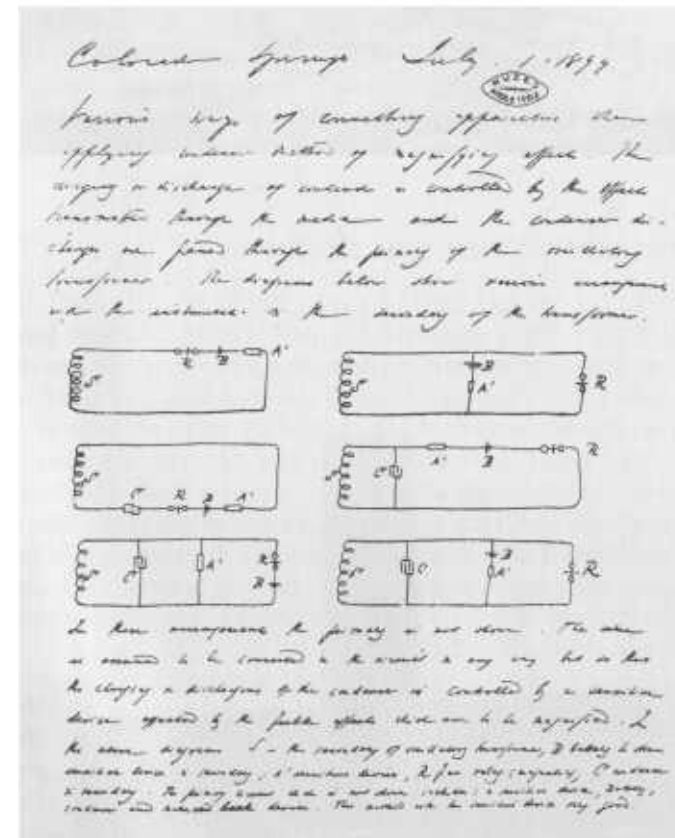 Colorado Springs July 1. 1899
Various ways of connecting apparatus when
applying condenser method of magnifying effects. The
charging or discharge of condenser is controlled by the effects
transmitted through the media and the condenser dis-
charges are passed through the primary of the oscillatory
transformer. The diagrams below show various arrangements
with the instruments in the secondary of the transformer.
S R B A'
S B A' R
S C R B A'
S C A' B R
S C A' R B
S C B A' R
In these arrangements the primary is not shown. The
is assumed to be connected in the circuit in any way but so that
the charging or discharging of the condenser is controlled by a sensitive
device affected by the feeble effects which are to be magnified. In
the above diagrams S - the secondary of oscillatory transformer, B battery to
sensitive device in secondary, A' sensitive device, R relay, C condenser
in secondary. The primary which is not shown a sensitive device, battery,
condenser and break device. This will very good.